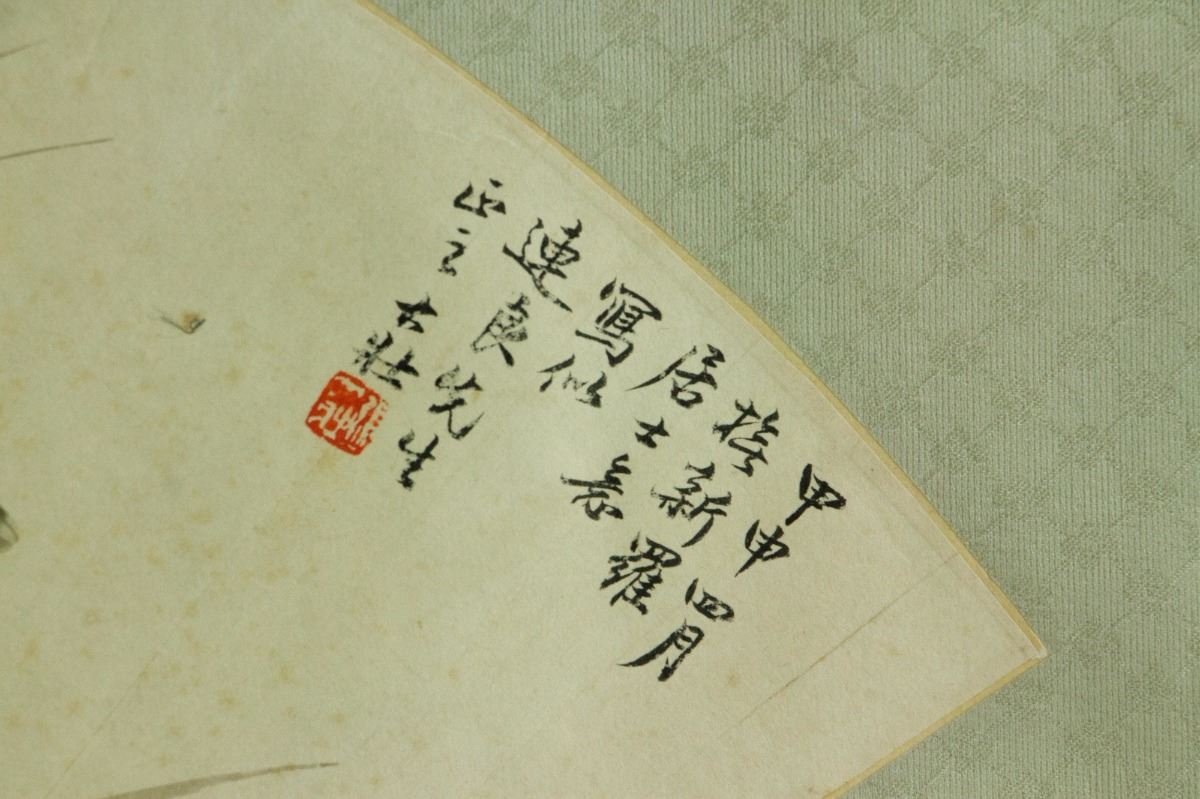 甲申四月
撫新羅
居士意
寫似
連良先生
正之 大壯